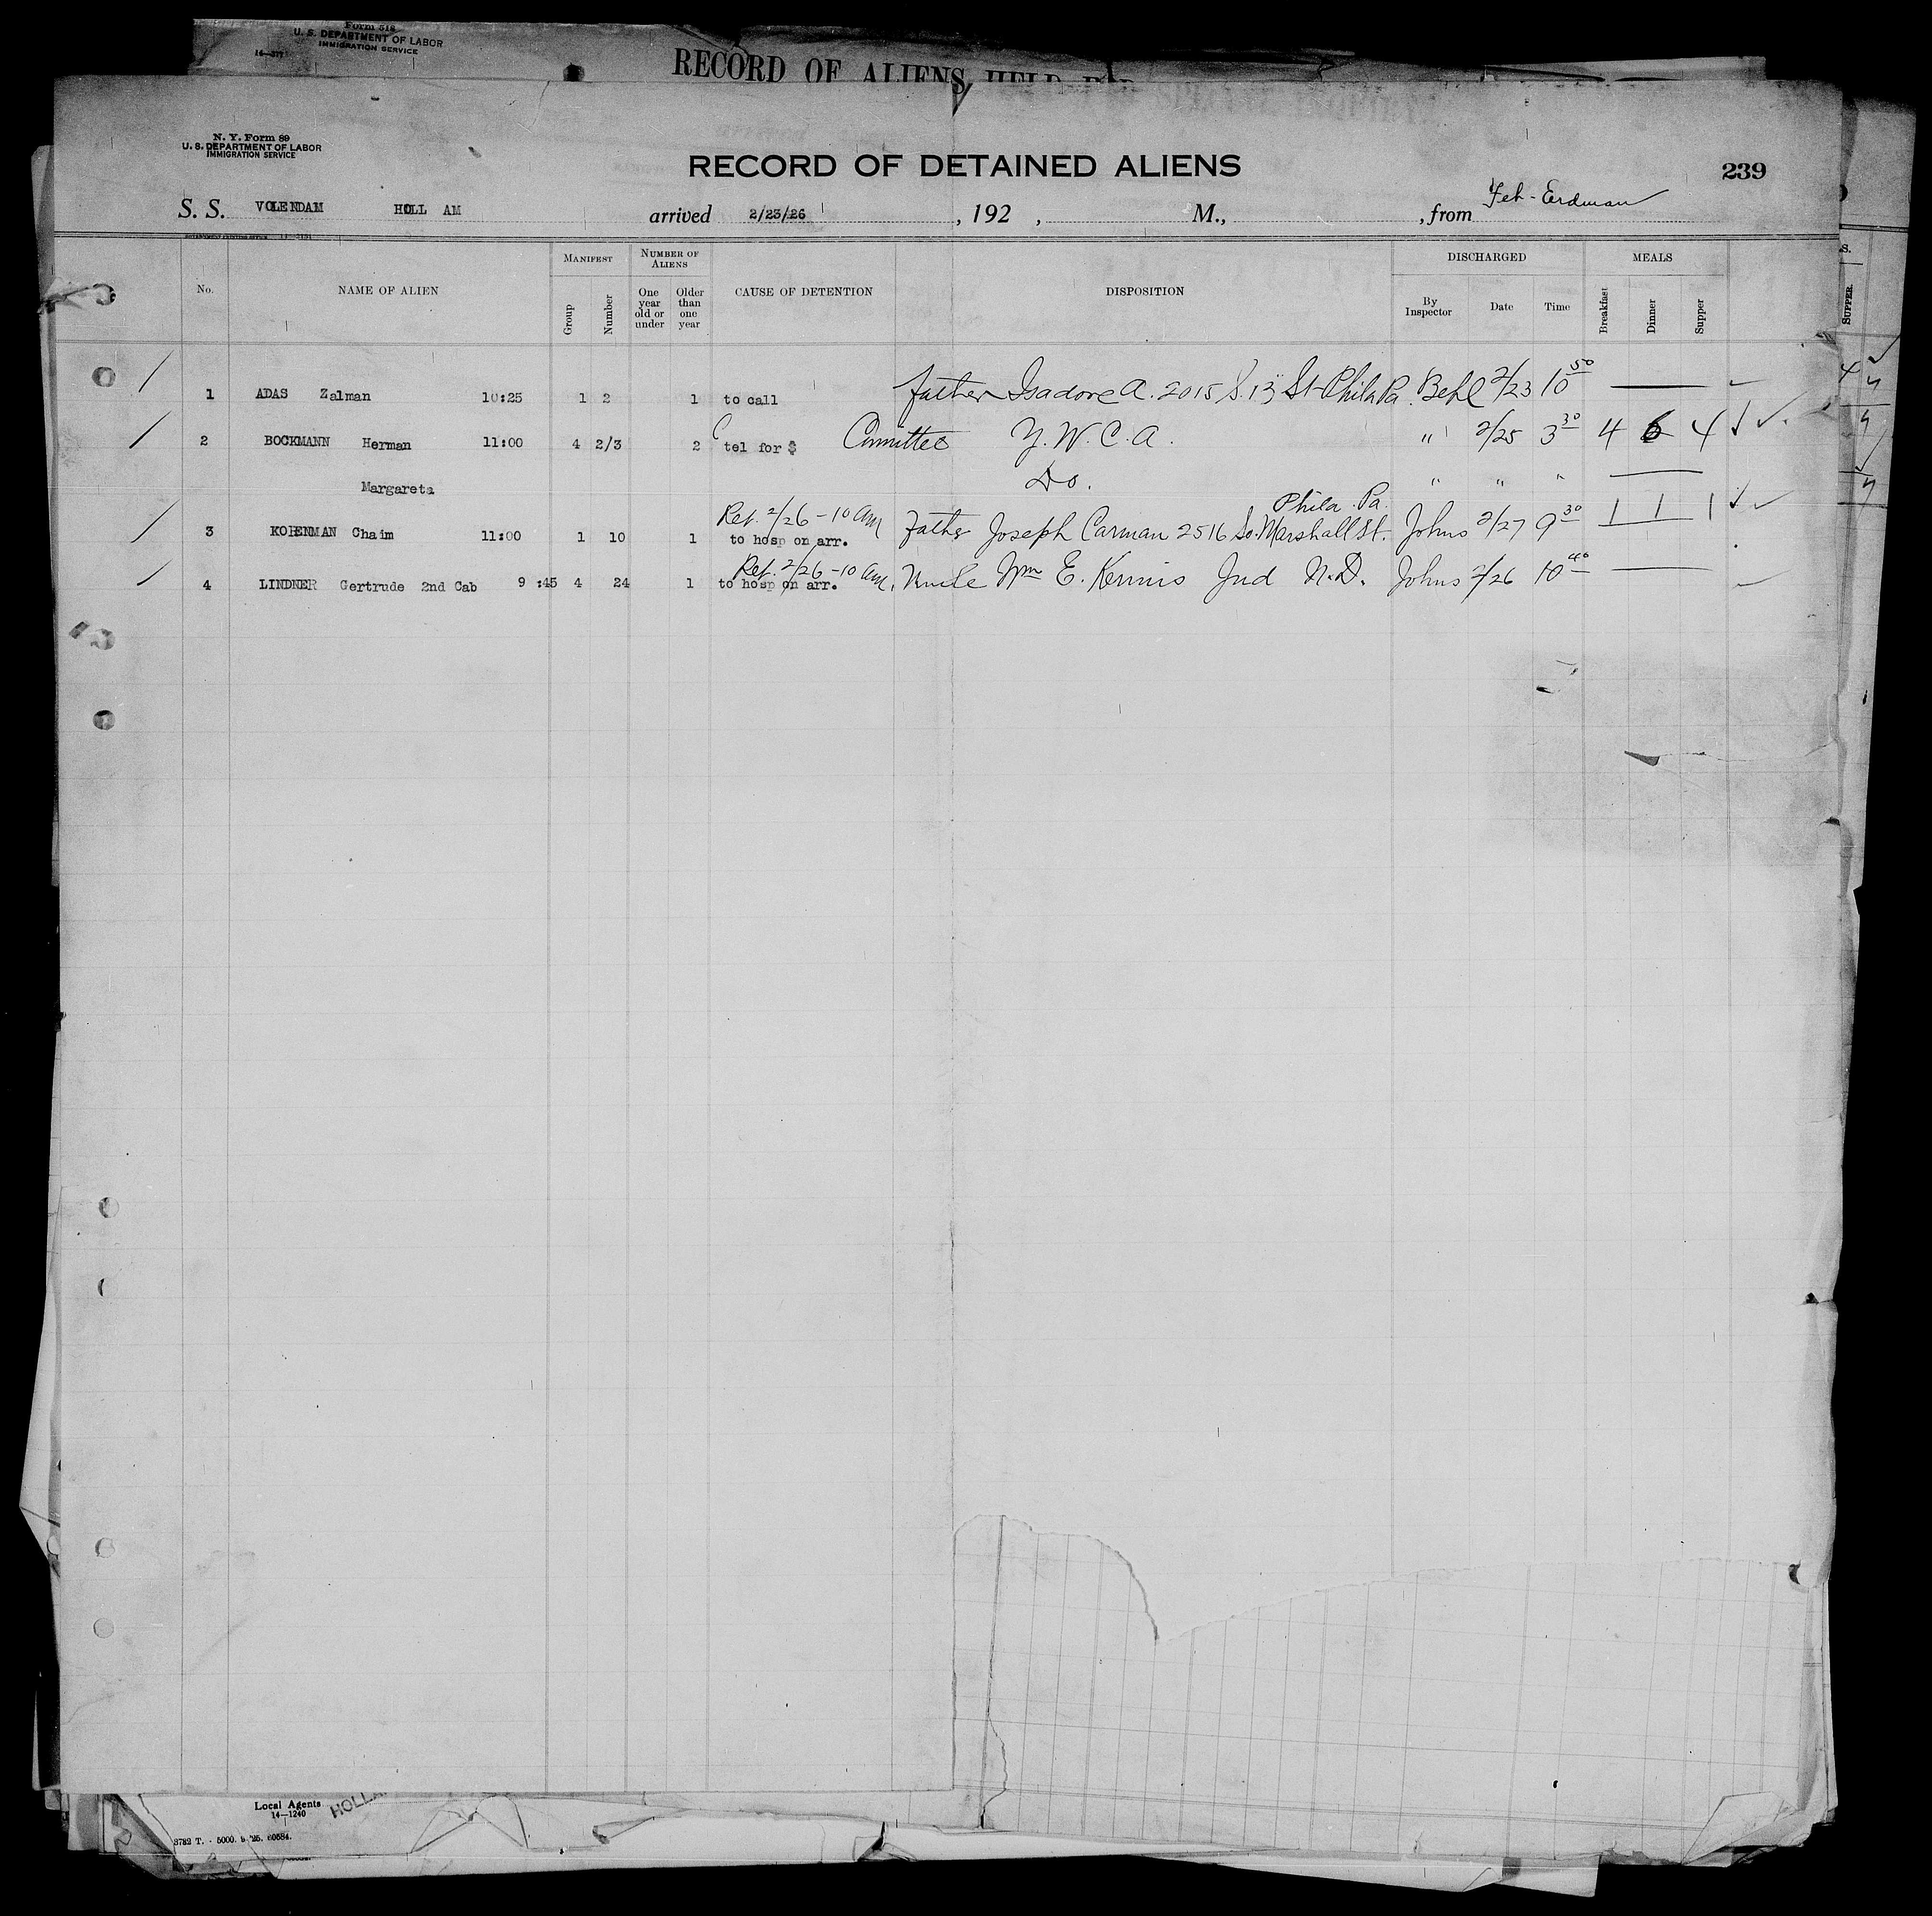 Form 518
U. S. DEPARTMENT OF LABOR
IMMIGRATION SERVICE
14—377
RECORD OF ALIENS HELD
N. Y. Form 89
U. S. DEPARTMENT OF LABOR
IMMIGRATION SERVICE
RECORD OF DETAINED ALIENS
239
S. S. VOLENDAM HOLL AM arrived 2/23/26, 192 , M., , from Feh-Erdman
No. NAME OF ALIEN MANIFEST Group Number NUMBER OF ALIENS One year old or under Older than one year CAUSE OF DETENTION DISPOSITION DISCHARGED By Inspector Date Time MEALS Breakfast Dinner Supper
SUPPER.
1 ADAS Zalman 10:25 1 2 1 to call Father Isadore A. 2015 S. 13 St Phila Pa. 2/23 10 50
2 BOCKMANN Herman 11:00 4 2/3 2 tel for $ Committee Y. W. C. A. " 2/25 3 30 4 6 4
Margareta Do. " " "
Ret. 2/26 - 10 am Phila. Pa.
3 KOHENMAN Chaim 11:00 1 10 1 to hosp on arr. Father Joseph Carman 2516 So. Marshall St. Johns 2/27 9 30 1 1 1
Ret. 2/26 - 10 am.
4 LINDNER Gertrude 2nd Cab 9 :45 4 24 1 to hosp on arr. Uncle Wm E. Kennis Jud N. D. Johns 2/26 10 40
Local Agents
14—1240
3782 T. - 5000. 9-'25. 60584.